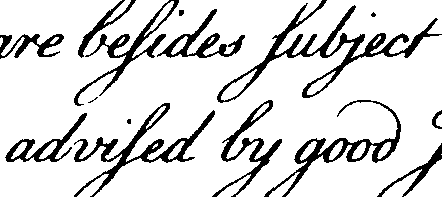 are beſides ſubject
adviſed by good